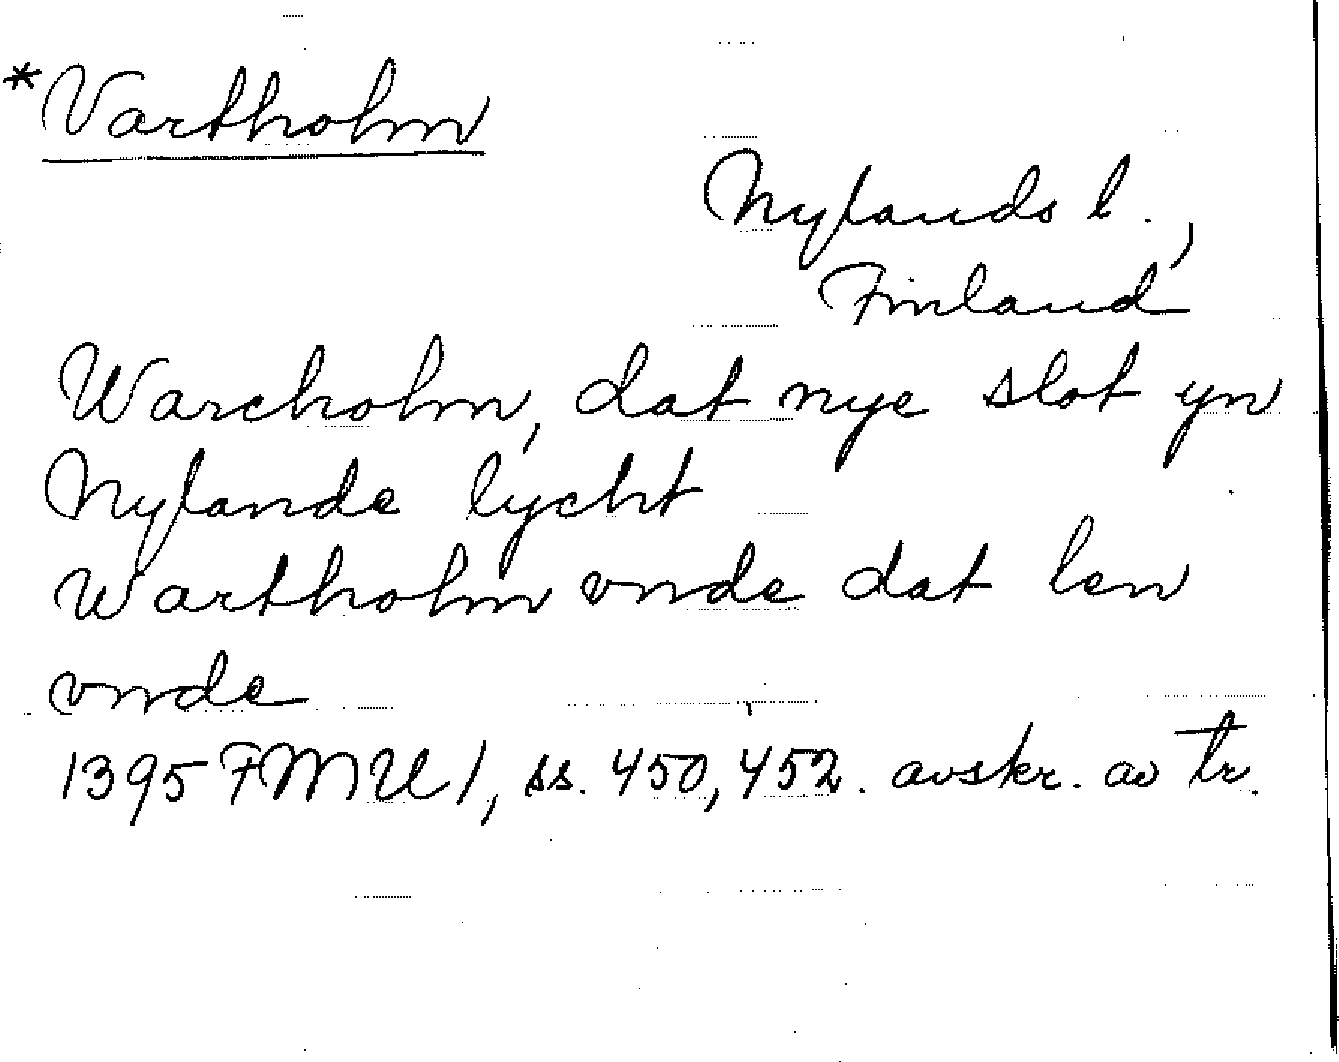 *Vartholm
Nylands l.,
Finland
Warcholm, dat nye slot yn
Nylande lycht
Wartholm vnde dat len
vnde
1395 FMU 1, ss. 450, 452. avskr. av tr.